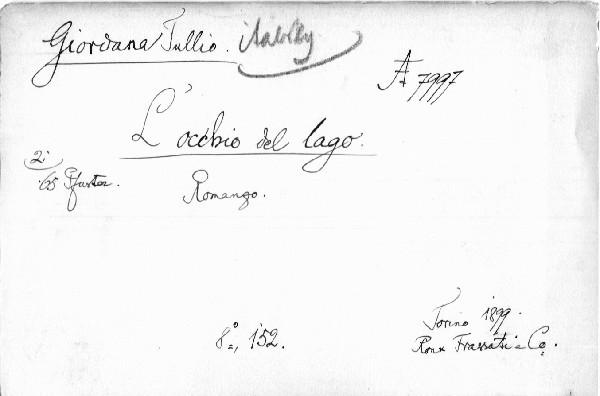 Giordana Tullio.
A 7997
L'occhio del lago.
2.
65
Romanzo.
8°, 152.
Torino 1899.
Roux Frassati e Co.